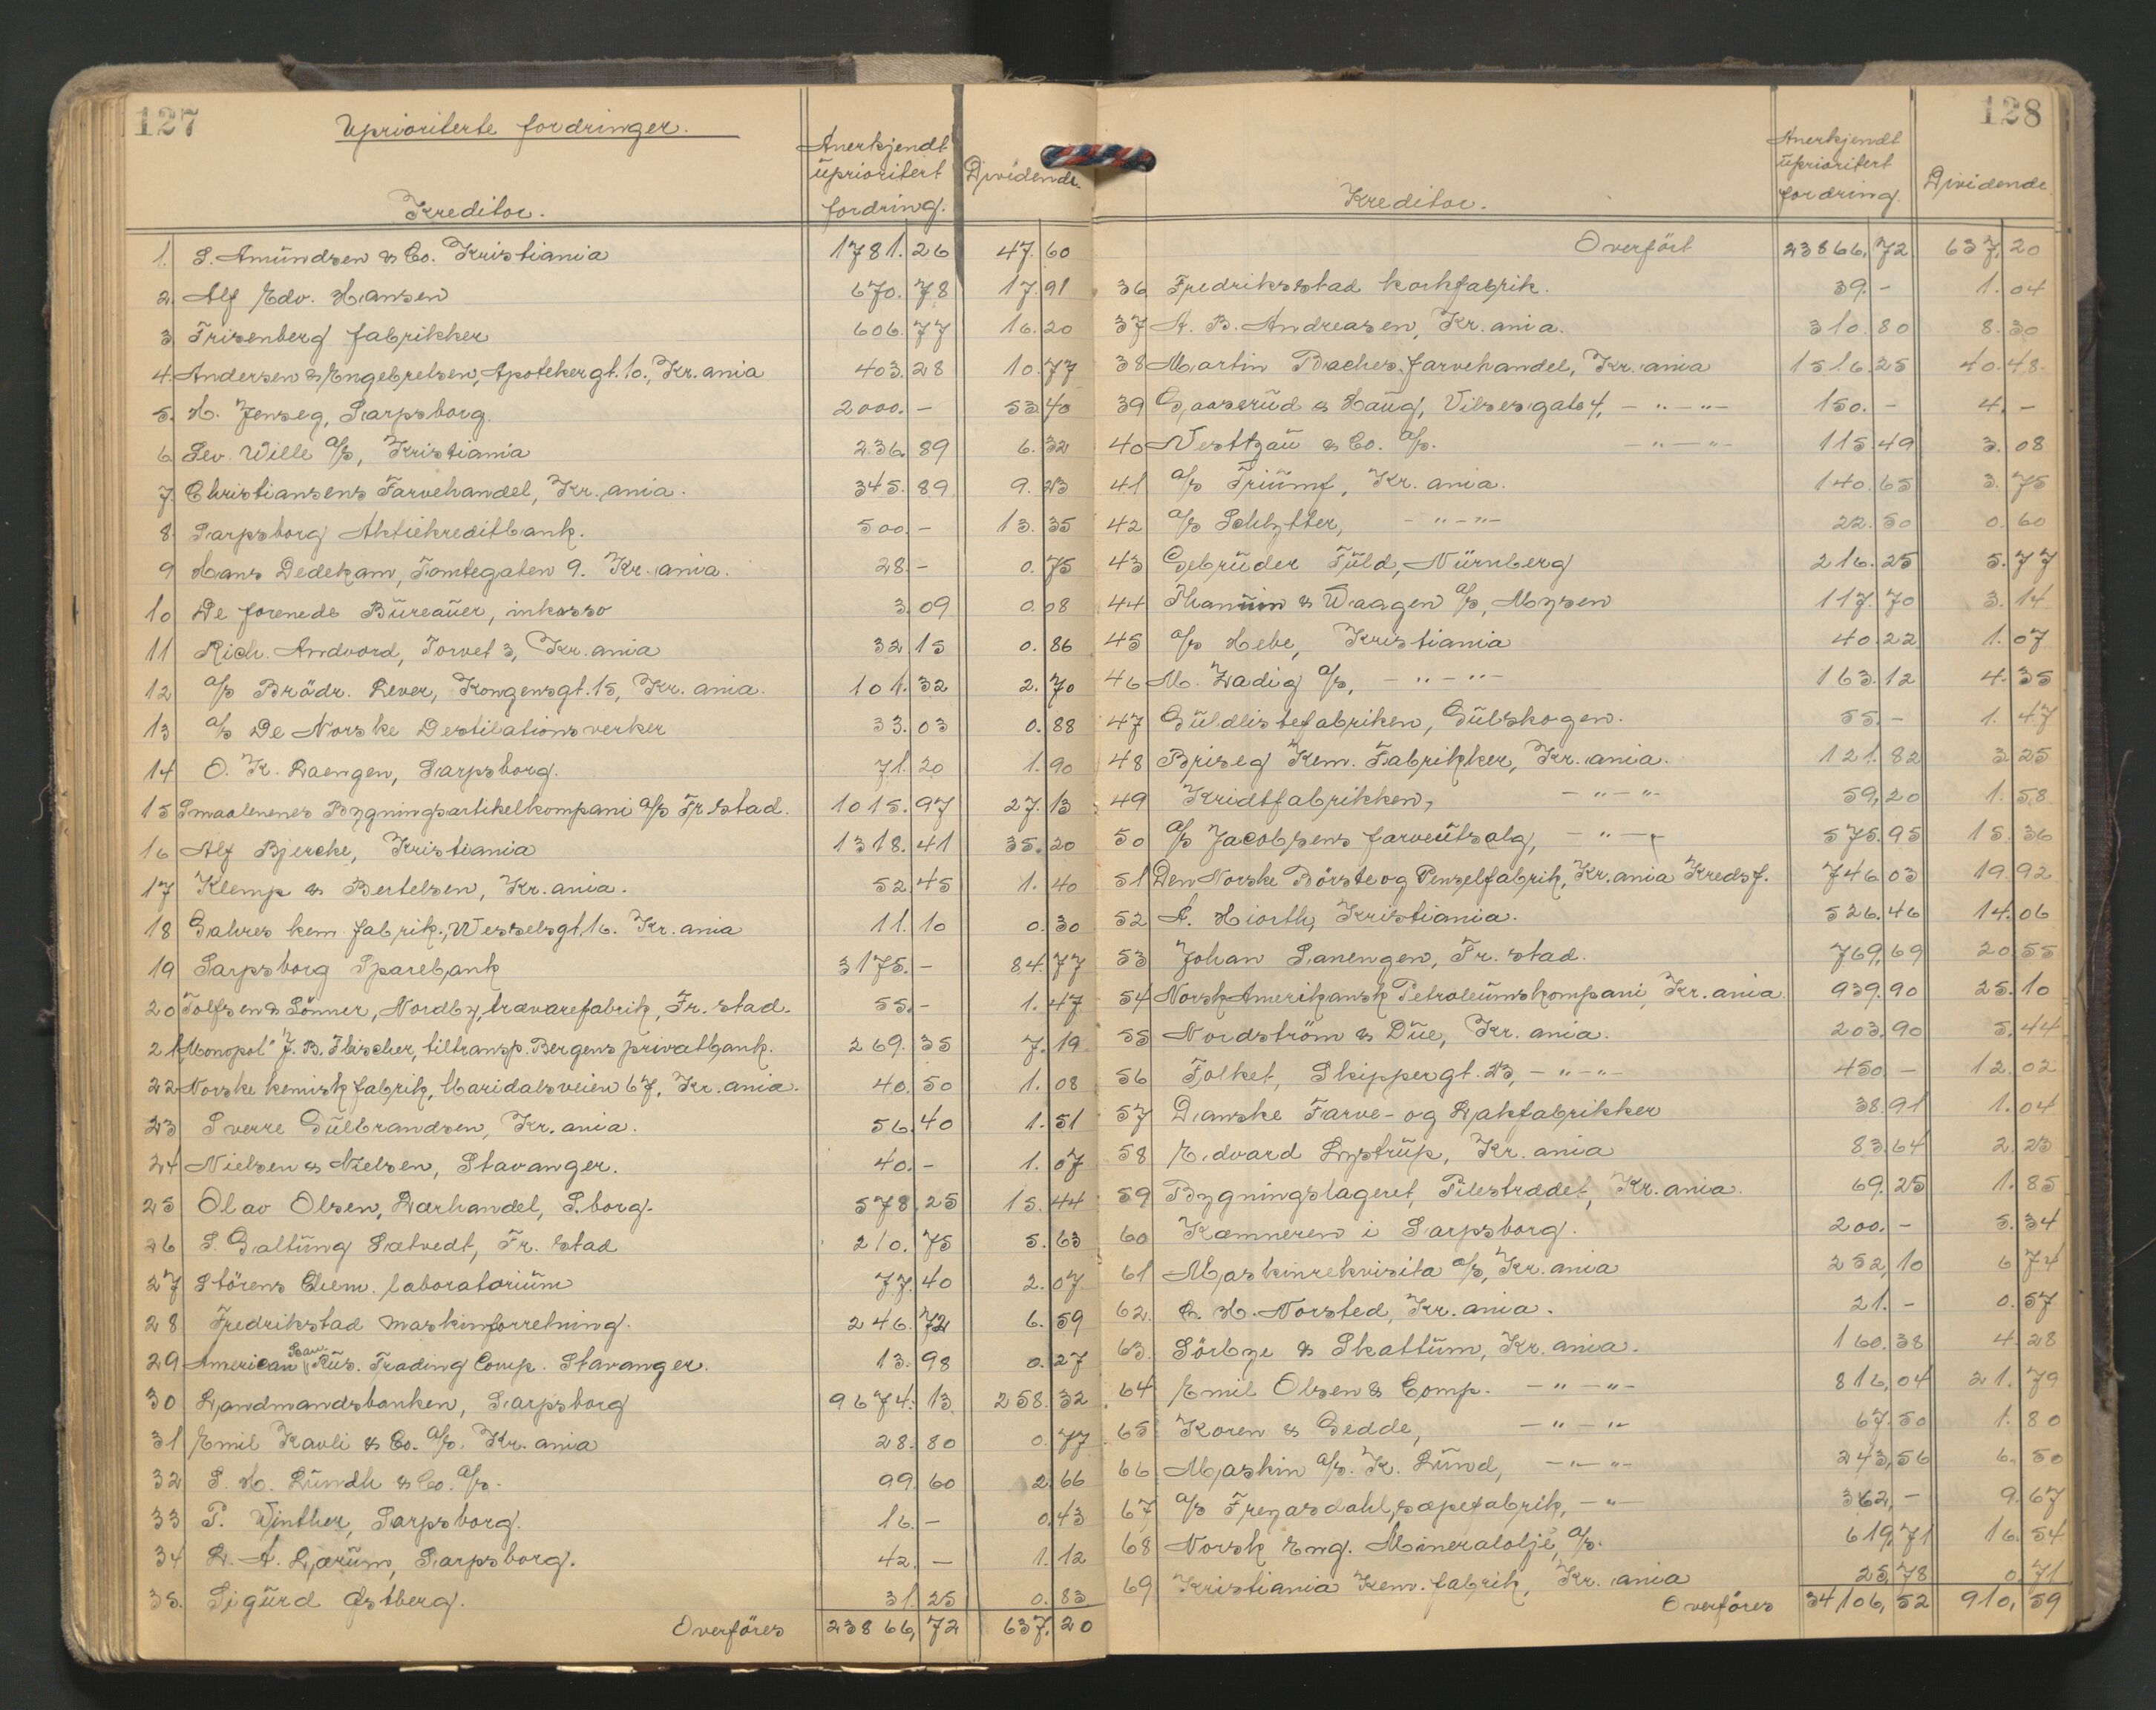 127
Uprioriterte fordringer.
Kreditor. Anerkjendt uprioritert fordring. Dividende.
1. S. Amundsen & Co. Kristiania 1781.26 47.60
2. Alf Edv. Hansen 670.78 17.91
3 Frisenberg fabrikker 606.77 16.20
4. Andersen & Engebretsen, Apotekergt. 10., Kr.ania 403.28 10.77
5. H. Jenseg, Sarpsborg. 2000.- 53.40
6 Sev. Wille A/S, Kristiania 236.89 6.32
7. Christiansens Farvehandel, Kr.ania. 345.89 9.23
8. Sarpsborg Aktiekreditbank. 500.- 13.35
9 Hans Dedekam, Tomtegaten 9. Kr.ania. 28.- 0.75
10 De forenede Bureauer, inkasso 3.09 0.08
11 Rich. Andvord, Torvet 3, Kr.ania 32.15 0.86
12 A/S Brödr. Lever, Kongensgt. 15, Kr.ania. 101.32 2.70
13 A/S De Norske Destilationsverker 33.03 0.88
14 O. K. Laengen, Sarpsborg. 71.20 1.90
15 Smaalenenes Bygningsartikelkompani A/S Fr.stad. 1015.97 27.13
16 Alf Bjercke, Kristiania 1318.41 35.20
17 Klemp & Bertelsen, Kr.ania. 52.45 1.40
18 Sahres kem fabrik., Wesselsgt. 16. Kr.ania 11.10 0.30
19 Sarpsborg Sparebank 3175.- 84.77
20 Tolfsen & Sönner, Nordby, trævarefabrik, Fr.stad. 55.- 1.47
21 "Monopol" J. B. Fleischer, tiltransp. Bergens privatbank. 269.35 7.19
22 Norske kemisk fabrik, Maridalsveien 67, Kr.ania. 40.50 1.08
23 Sverre Gulbrandsen, Kr.ania. 56.40 1.51
24 Nielsen & Nielsen, Stavanger. 40.- 1.07
25 Olav Olsen, Lærhandel, S.borg. 578.25 15.44
26 S. Galtung Sætvedt, Fr.stad 210.75 5.63
27 Störens Chem. laboratorium 77.40 2.07
28 Fredrikstad maskinforretning. 246.72 6.59
29 American Scan. Rus. Trading Comp. Stavanger. 13.98 0.27
30 Landmandsbanken, Sarpsborg 9674.13 258.32
31 Emil Kavli & Co. A/S. Kr.ania 28.80 0.77
32 S. H. Lundh & Co. A/S. 99.60 2.66
33 P. Winther, Sarpsborg. 16.- 0.43
34 L. A. Lærum, Sarpsborg. 42.- 1.12
35. Sigurd Østberg. 31.25 0.83
Overföres 23866,72 637.20
128
Kreditor. Anerkjendt uprioritert fordring. Dividende.
Overfört 23866,72 637,20
36 Fredriksstad korkfabrik. 39.- 1.04
37 A. B. Andreasen, Kr.ania. 310.80 8.30
38 Martin Baches farvehandel, Kr.ania 1516.25 40.48
39 Gaaserud & Haug, Vibesgate 4, - " - " - 150.- 4.-
40 Vesttzau & Co. A/S. - " - " - 115.49 3.08
41 A/S Triumf, Kr.ania. 140.65 3.75
42 A/S Schlytter, - " - " - 22.50 0.60
43 Gebrüder Füld, Nürnberg 216.25 5.77
44 Thanum & Waagen A/S, Mysen 117.70 3.14
45 A/S Hebe, Kristiania 40.22 1.07
46 M. Zadig A/S, - " - " - 163.12 4.35
47 Guldlistefabriken, Gulskogen. 55.- 1.47
48 Briseg Kem. Fabrikker, Kr.ania. 121.82 3.25
49 Kridtfabrikken, - " - " - 59,20 1.58
50 A/S Jacobsens farveutsalg, - " - " 575.95 15.36
51 Den Norske Börste og Penselfabrik, Kr.ania Kredsf. 746.03 19.92
52 A. Hiorth, Kristiania. 526.46 14.06
53 Johan Sanengen, Fr.stad. 769,69 20.55
54 Norsk Amerikansk Petroleumskompani, Kr.ania. 939.90 25.10
55 Nordström & Due, Kr.ania. 203.90 5.44
56 Folket, Skippergt. 23, - " - " - 450.- 12.02
57 Danske Farve- og Lakfabrikker 38.91 1.04
58 Edvard Lystrup, Kr.ania 83.64 2.23
59 Bygningslageret, Pilestrædet, Kr.ania. 69.25 1.85
60 Kæmneren i Sarpsborg. 200.- 5.34
61 Maskinrekvisita A/S, Kr.ania 252,10 6.74
62. H. Norsted, Kr.ania. 21.- 0.57
63. Sörbye & Skattum, Kr.ania. 160.38 4.28
64 Emil Olsen & Comp. - " - " - 816,04 21.79
65 Koren & Gedde, - " - " - 67.50 1.80
66 Maskin A/S. K. Lund, - " - " - 243,56 6.50
67 A/S Freyasdahl sæpefabrik, - " - 362,- 9.67
68 Norsk Eng. Mineralolje A/S. 619,71 16.54
69 Kristiania Kem. fabrik, Kr.ania 25,78 0.71
Overföres 34106,52 910,59